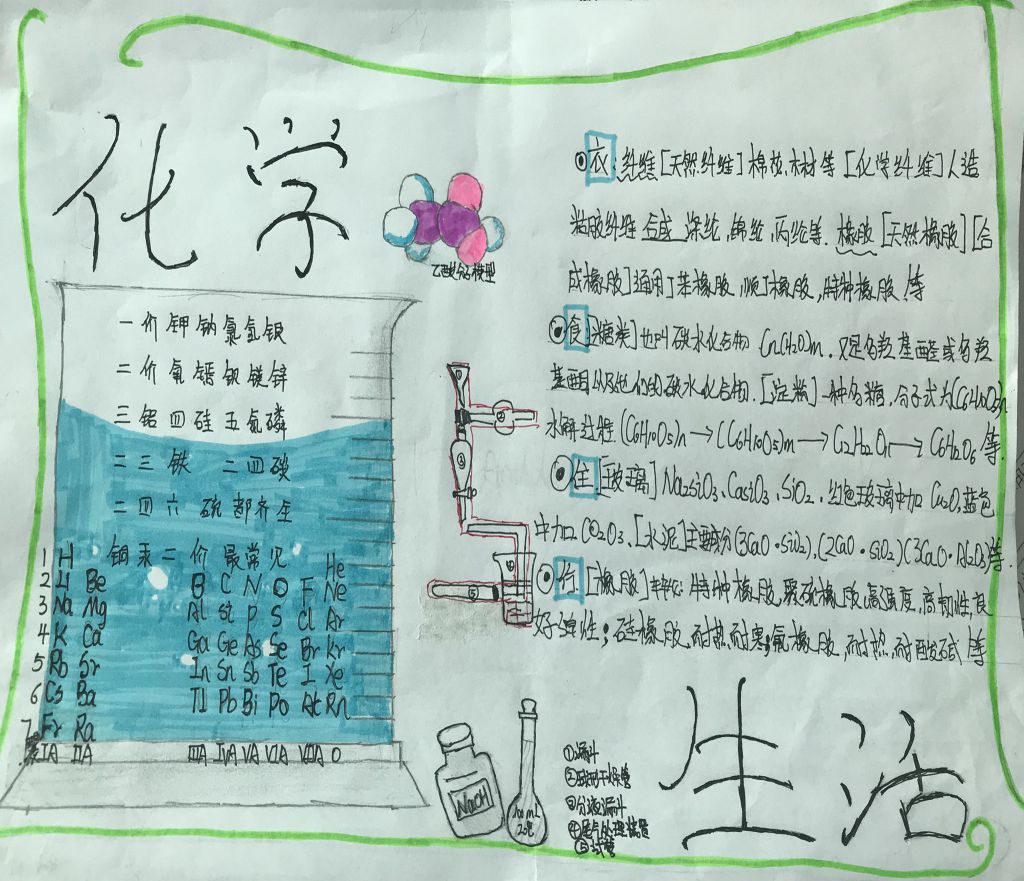 化学
乙酸分子模型
一价钾钠氯氢银
二价氧钙钡镁锌
三铝四硅五氮磷
二三铁 二四碳
二四六硫都齐全
铜汞二价最常见
1 H He
2 Li Be B C N O F Ne
3 Na Mg Al Si P S Cl Ar
4 K Ca Ga Ge As Se Br Kr
5 Rb Sr In Sn Sb Te I Xe
6 Cs Ba Tl Pb Bi Po At Rn
7 Fr Ra
IA IIA IIIA IVA VA VIA VIIA 0
衣:纤维[天然纤维]棉花,木材等[化学纤维]人造
粘胶纤维 合成 涤纶,锦纶,丙纶等。橡胶[天然橡胶][合
成橡胶]通用丁苯橡胶,顺丁橡胶,特种橡胶 等
食[糖类]也叫碳水化合物 Cn(H2O)m. 又是多羟基醛或多羟
基酮以及他们的碳水化合物.[淀粉]一种多糖,分子式为(C6H10O5)n
水解过程(C6H10O5)n→(C6H10O5)m→C12H22O11→C6H12O6等.
住[玻璃]Na2SiO3、CaSiO3、SiO2. 红色玻璃中加Cu2O,蓝色
中加Co2O3、[水泥]主要成分(3CaO·SiO2),(2CaO·SiO2)(3CaO·Al2O3)等.
行[橡胶]轮胎:特种橡胶,聚硫橡胶,高强度,高韧性,良
好弹性;硅橡胶,耐热,耐寒;氟橡胶,耐热,耐酸碱 等
① ② ③ ④ ⑤
NaOH
100mL
20℃
①漏斗
②球形干燥管
③分液漏斗
④尾气处理装置
⑤试管
生活